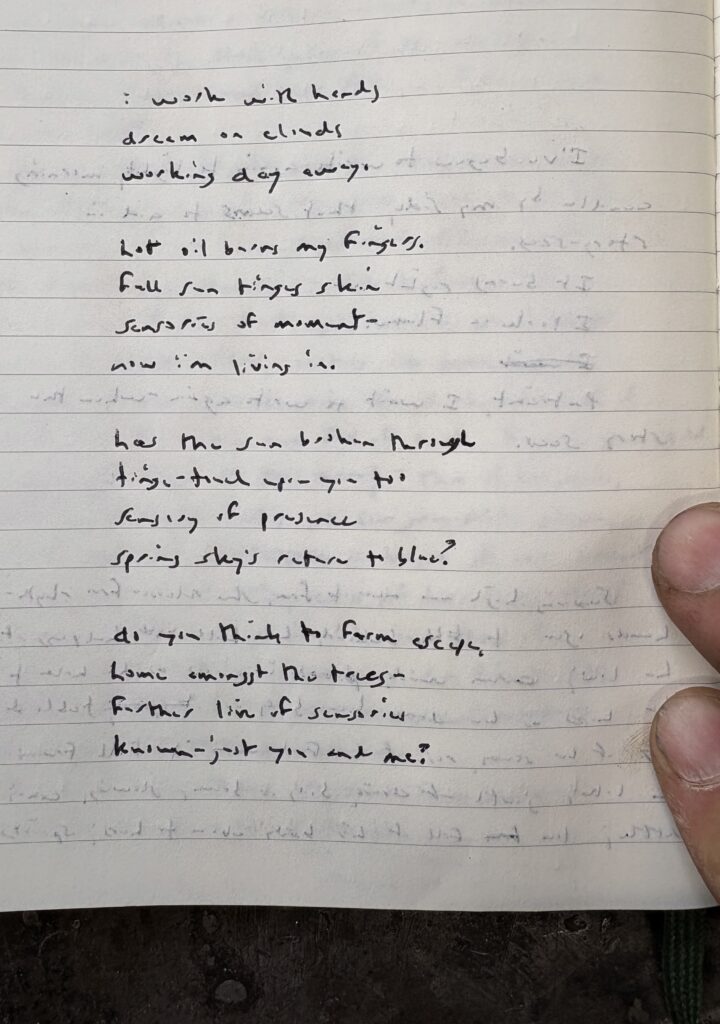 i work with hands
dream on clouds
working day away.
hot oil burns my fingers.
full sun tinges skin
sensories of moment-
now i'm living in.
has the sun broken through
tinge-touch upon you too
sensory of presence
spring sky's return to blue?
do you think to farm escape,
home amongst the trees-
further live of sensories
known-just you and me?